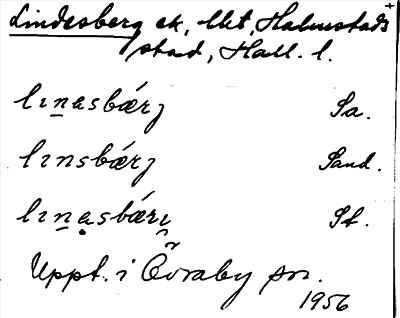 Lindesberg ek, Uet, Halmstads +
stad, Hall. l.
lınasbǽrj Sa.
lınsbǽrj Sand.
lınạsbǽrı St.
Uppt. i Övraby sn.
1956